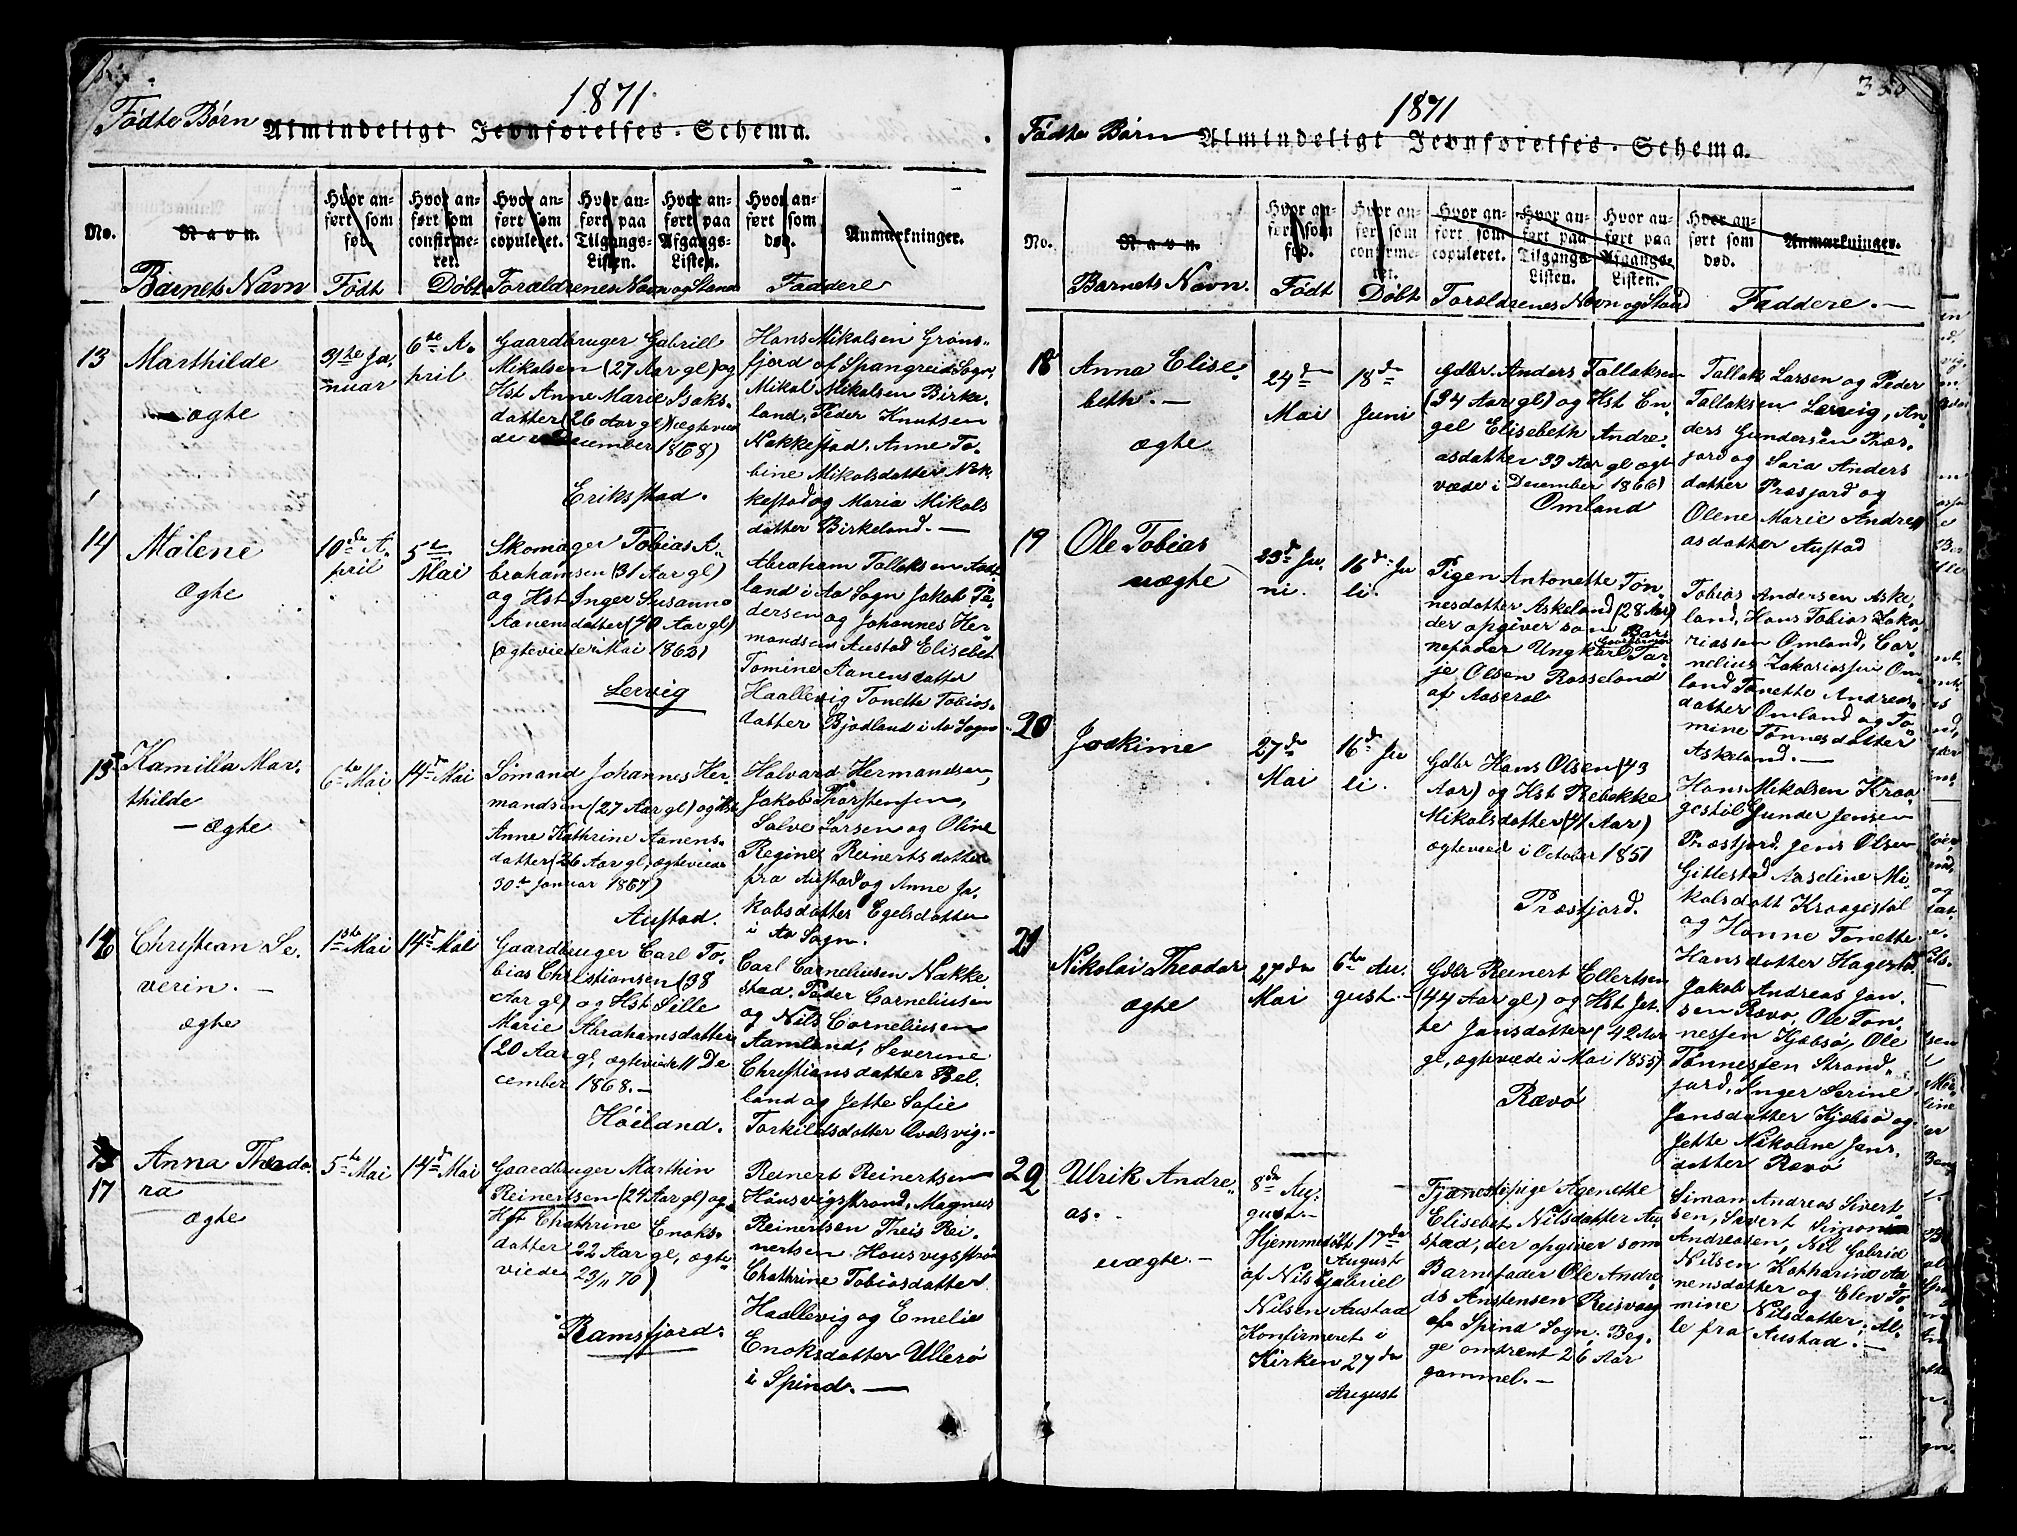 1871.
Fødte Børn Almindeligt Jevnførelses-Schema.
No.
Navn.
Barnets Navn
Hvor an-
ført som
fød.
Født
Hvor an-
ført som
confirme-
ret.
Døbt
Hvor an-
ført som
copuleret.
Hvor an-
ført paa
Tilgangs-
Listen.
Hvor an-
ført paa
Afgangs-
Listen.
Forældrenes Navn og Stand
Hvor an-
ført som
død.
Anmærkninger.
Faddere
13
Marthilde
ægte
31te Ja,
nuar
6te A,
pril
Gaardbruger Gabriel
Mikalsen (27 Aar gl) og
Hst Anne Marie Isaks,
datter (26 Aar gl) ægtevie
de i December 1868)
Erikstad.
Hans Mikalsen Grøns,
fjord af Spangreid Sogn,
Mikal Mikalsen Birke,
land, Peder Knutsen
Nakkestad, Anne To,
bine Mikalsdatter Nak
kestad og Maria Mikals
datter Birkeland. —
14
Målene
Ægte
10de A,
pril
5te
Mai
Skomager Tobias A,
brahamsen (31 Aar gl)
og Hst Inger Susanne
Aanensdatter (40 Aar gl)
(ægteviede i Mai 1862)
Lervig
Abraham Tallaksen
land i Aa Sogn Jakob Pe,
dersen og Johannes Her
mandsen Austad Elisebet
Tomine Aanensdatter
Haallevig Tonette Tobias,
datter Bjodland i Aa Sogn
15
Kamilla Mar,
thilde
— Ægte
6te Mai
14de Mai
Sømand Johannes Her
mandsen (27 Aar gl) og Hst
Anne Kathrine Aanens,
datter (26 Aar gl, ægteviede
30te Januar 1867)
Austad.
Halvard Hermandsen,
Jakob Thorstensen,
Salve Larsen og Oline
Regine Reinertsdatter
fra Austad og Anne Ja,
kobsdatter Egelsdatter
i Aa Sogn.
16
Christian Se,
verin. —
ægte
1ste Mai
14de Mai
Gaardbruger Carl To,
bias Christiansen (38
Aar gl) og Hst Sille
Marie Abrahamsdatter
(20 Aar gl, ægteviede 11 De
cember 1868. —
Høiland.
Carl Corneliusen Nakke,
stad, Peder Corneliusen
og Nils Corneliusen
Aamland, Severine
Christiansdatter Bel,
land og Jette Sofie
Torkildsdatter Qvalsvig. —
17
Anna Theodo,
ra
ægte
5te Mai
14de Mai
Gaardbruger Marthin
Reinertsen (24 Aar gl) og
Hst Chathrine Enoks,
datter 22 Aar gl, ægte,
viede 23/11 70)
Ramsfjord.
Reinert Reinertsen
Hausvigstrand, Magnus
Reinertsen Theis Rei,
nertsen Hausvigstrand
Chathrine Tobiasdatter
Haallevig og Emelie
Enoksdatter Ullerø
i Spind. —
1871
Fødte Børn Almindeligt Jevnførelses-Schema.
No.
Navn.
Barnets Navn.
Hvor an-
ført som
fød.
Født
Hvor an-
ført som
confirme-
ret.
Døbt
Hvor an-
ført som
copuleret.
Hvor an-
ført paa
Tilgangs-
Listen.
Hvor an-
ført paa
Afgangs-
Listen.
Forældrenes Navn og Stand
Hvor an-
ført som
død.
Anmærkninger.
Faddere. —
18
Anna Elise,
beth. —
ægte
24de
Mai
18de
Juni
Gdbr. Anders Tallaksen
(34 Aar gl) og Hst En,
gel Elisebeth Andre,
asdatter 33 Aar gl ægt
viede i December 1866)
Omland
Tallak Larsen og Peder
Tallaksen Lervig, An,
ders Gundersen Præs,
jord og Saia Anders
datter Præsjord og
Olene Marie Andre
asdatter Austad
19
Ole Tobias
uægte
23de Ju,
ni.
16de Ju
li.
Pigen Antonette Tøn,
nesdatter Askeland (28 Aar)
der opgiver som Bar,
nefader Ungkarl Tar,
je Olsen Rosseland
af Aaseral
Tobias Andersen Aske,
land, Hans Tobias Zaka,
riassen Omland, Cor,
nelius Zakariassen Om,
land Tonette Andreas,
datter Omland og To
mine Tønnesdatter
Askeland. —
20
Joakime
27de
Mai
16de Ju
li.
Gdbr Hans Olsen (43
Aar) og Hst Rebekke
Mikalsdatter (41 Aar)
ægteviede i October 1851
Præstjord.
Hans Mikalsen Kraa,
gestøl Gunder Jensen
Præstjord, Jens Olsen
Gitlestad Aaseline Mi,
kalsdatt Kraagestøl
og Hanne Tonette
Hansdatter Hagestad
21
Nikolai Theodor
ægte
27de
Mai
6te Au,
gust. —
Gdbr Reinert Ellertsen
(44 Aar gl) og Hst Jet,
te Jansdatter (42 Aar
gl, ægteviede i Mai 1855)
Rævø
Jakob Andreas Jan,
sen Rævø, Ole Tøn,
nessen Hjæbsø, Ole
Tønnessen Strand,
jord, Inger Serine
Jansdatter Kjæbsø og
Jette Nikoline Jans,
datter Rævø
22
Ulrik Andre,
as. -
uægte. —
8de Au,
gust —
Hjemmedøbt 17de
August
af Nils Gabriel
Nilsen Austad
Konfirmeret i
Kirken 27de
August
Tjænestepige Agenette
Elisebet Nilsdatter Au
stad, der opgiver som
Barnefader Ole Andre,
as Anstensen Reisvaag
af Spind Sogn, Beg,
ge omtrent 26 Aar
gammel. —
Simon Andreas Sivert,
sen, Sivert Simon
Andreasen, Nil Gabriel
Nilsen Katharine Aa
nensdatter og Elen To,
mine Nilsdatter, Al,
le fra Austad. —